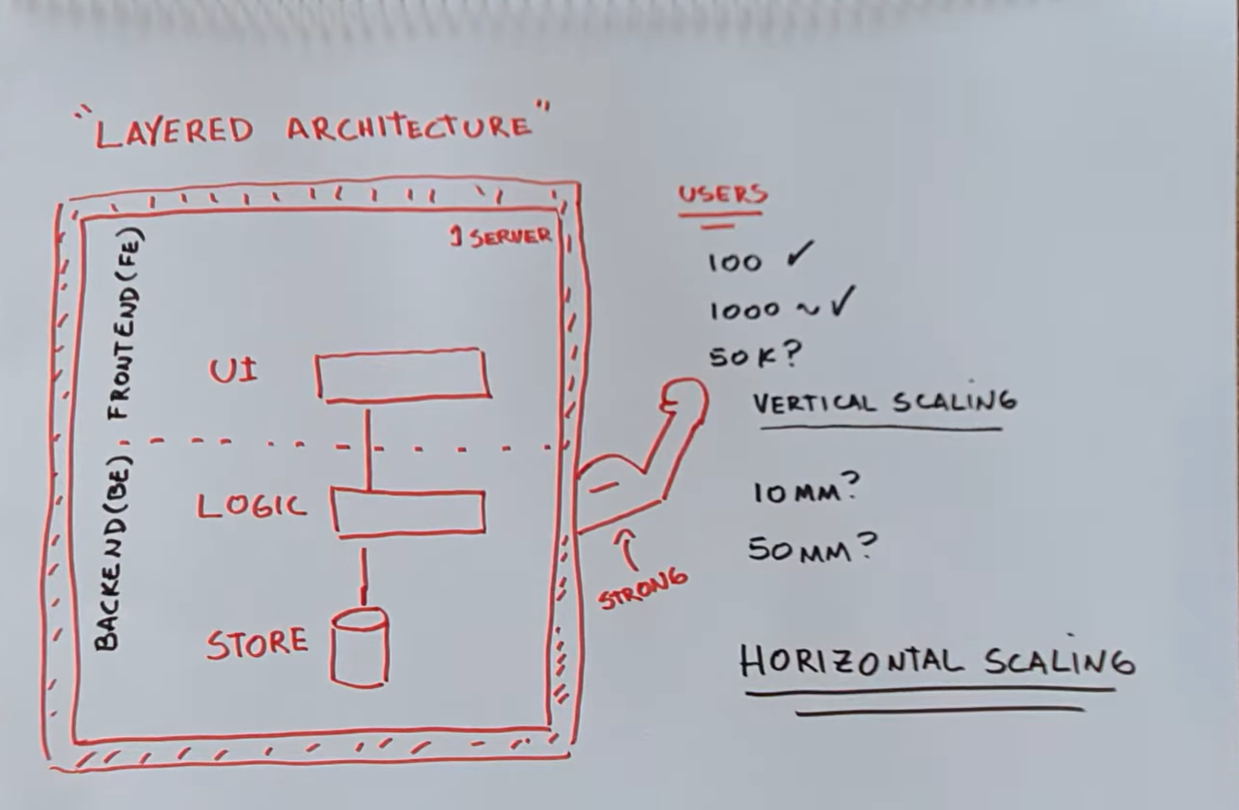 "LAYERED ARCHITECTURE"
1 SERVER
FRONTEND (FE)
BACKEND (BE)
UI
LOGIC
STORE
STRONG
USERS
100 ✓
1000 ~ ✓
50K?
VERTICAL SCALING
10MM?
50MM?
HORIZONTAL SCALING